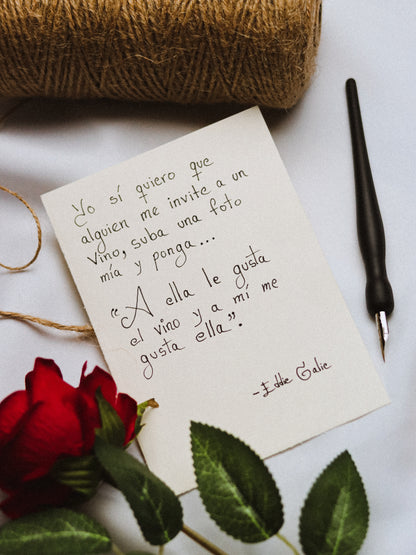 Yo sí quiero que
alguien me invite a un
vino, suba una foto
mía y ponga...
"A ella le gusta
el vino y a mí me
gusta ella".
- Eddie Galie